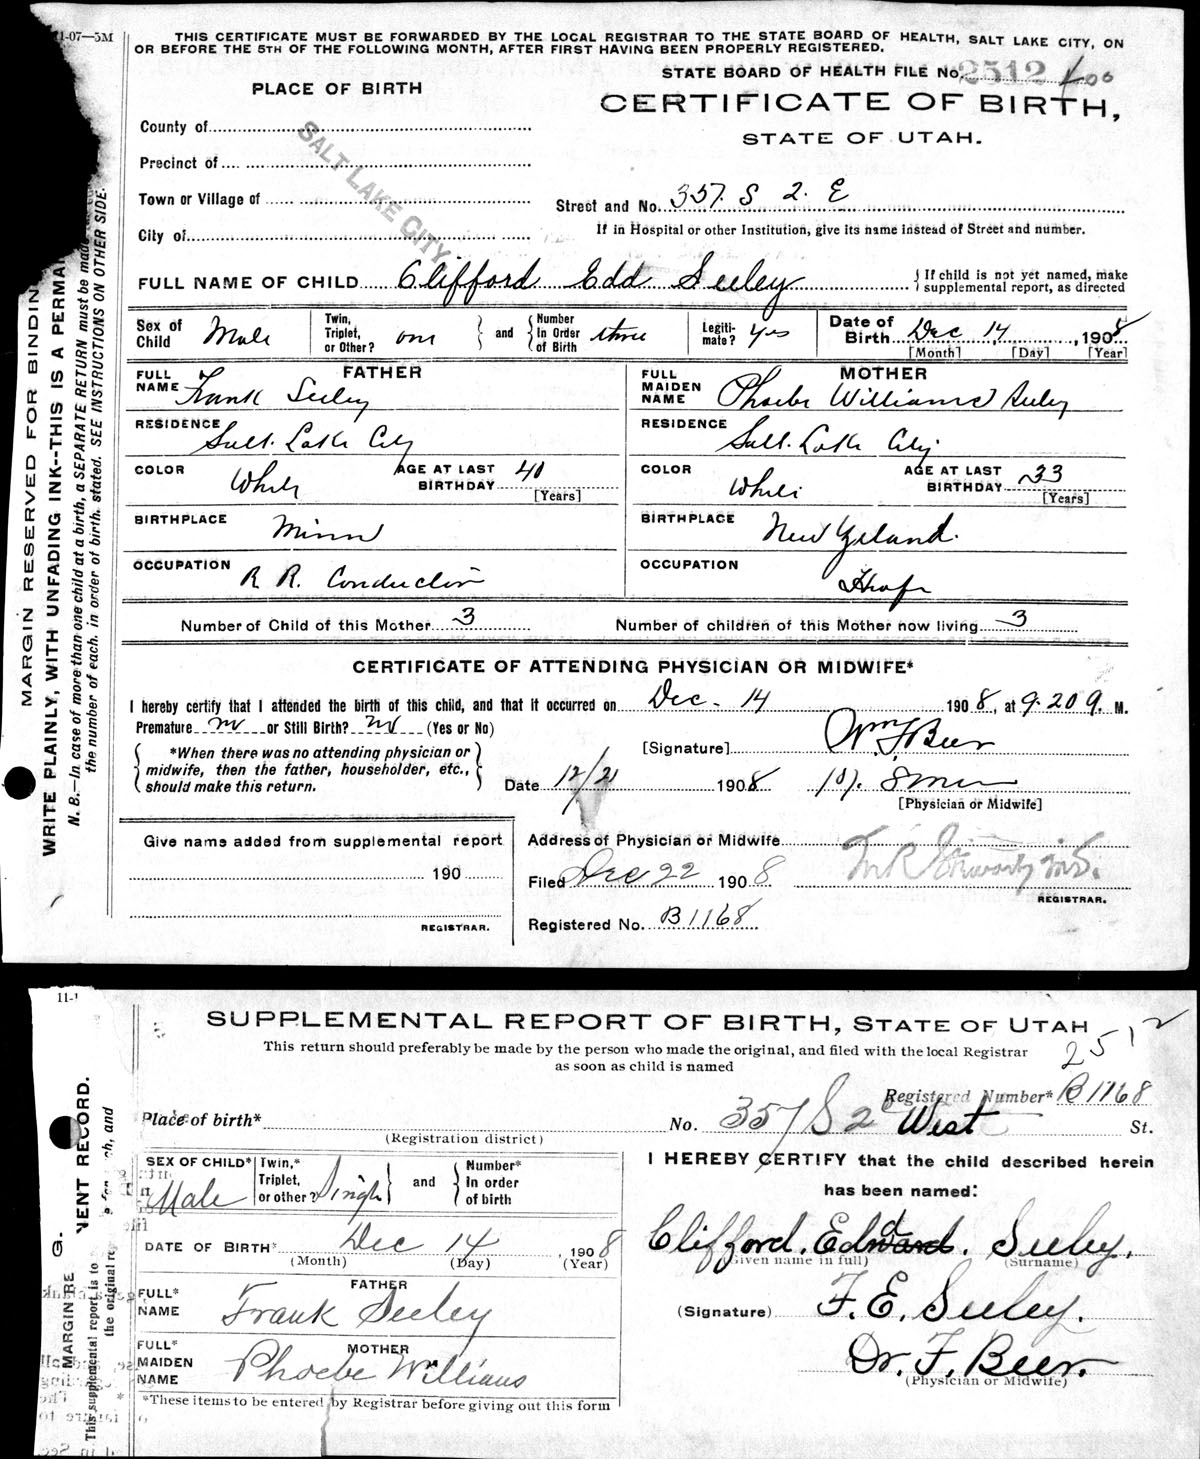 11-07—5M
THIS CERTIFICATE MUST BE FORWARDED BY THE LOCAL REGISTRAR TO THE STATE BOARD OF HEALTH, SALT LAKE CITY, ON
OR BEFORE THE 5TH OF THE FOLLOWING MONTH, AFTER FIRST HAVING BEEN PROPERLY REGISTERED.
STATE BOARD OF HEALTH FILE No. 2512
PLACE OF BIRTH
CERTIFICATE OF BIRTH,
STATE OF UTAH.
County of
Precinct of
Town or Village of
City of
SALT LAKE CITY
Street and No. 357. S 2. E
If in Hospital or other Institution, give its name instead of Street and number.
FULL NAME OF CHILD Clifford Edd Seeley
{If child is not yet named, make
supplemental report, as directed
Sex of Child Male
Twin, Triplet, or Other? one } and { Number in Order of Birth three
Legitimate? yes
Date of Birth Dec 14, 1908
[Month] [Day] [Year]
FATHER
FULL NAME Frank Seeley
RESIDENCE Salt Lake City
COLOR White AGE AT LAST BIRTHDAY 40
[Years]
BIRTHPLACE Minn
OCCUPATION R R. Conductor
MOTHER
FULL MAIDEN NAME Phoebe Williams Seeley
RESIDENCE Salt Lake City
COLOR White AGE AT LAST BIRTHDAY 33
[Years]
BIRTHPLACE New Zeland.
OCCUPATION
Number of Child of this Mother 3 Number of children of this Mother now living 3
CERTIFICATE OF ATTENDING PHYSICIAN OR MIDWIFE*
I hereby certify that I attended the birth of this child, and that it occurred on Dec. 14 1908, at 9.20 M.
Premature no or Still Birth? no (Yes or No)
{ *When there was no attending physician or
midwife, then the father, householder, etc.,
should make this return. }
[Signature] Wm F Beer
Date 12/21 1908
[Physician or Midwife]
Give name added from supplemental report
190
REGISTRAR.
Address of Physician or Midwife
Filed Dec 22 1908
REGISTRAR.
Registered No. B1168
MARGIN RESERVED FOR BINDIN
WRITE PLAINLY, WITH UNFADING INK--THIS IS A PERMA
N. B.—In case of more than one child at a birth, a SEPARATE RETURN must be made
the number of each, in order of birth, stated. SEE INSTRUCTIONS ON OTHER SIDE.
11-1
SUPPLEMENTAL REPORT OF BIRTH, STATE OF UTAH
This return should preferably be made by the person who made the original, and filed with the local Registrar
as soon as child is named
2512
Registered Number* B1168
Place of birth*
(Registration district)
No. 357 S 2 West St.
SEX OF CHILD* Male
Twin,* Triplet, or other? Single } and { Number* in order of birth
DATE OF BIRTH* Dec 14, 1908
(Month) (Day) (Year)
FATHER
FULL* NAME Frank Seeley
MOTHER
FULL* MAIDEN NAME Phoebe Williams
*These items to be entered by Registrar before giving out this form
I HEREBY CERTIFY that the child described herein
has been named:
Clifford. Edd. Seeley.
(Given name in full) (Surname)
(Signature) F. E. Seeley.
Dr. F. Beer.
(Physician or Midwife)
MARGIN RE
NENT RECORD.
This supplemental report is to
the original rep